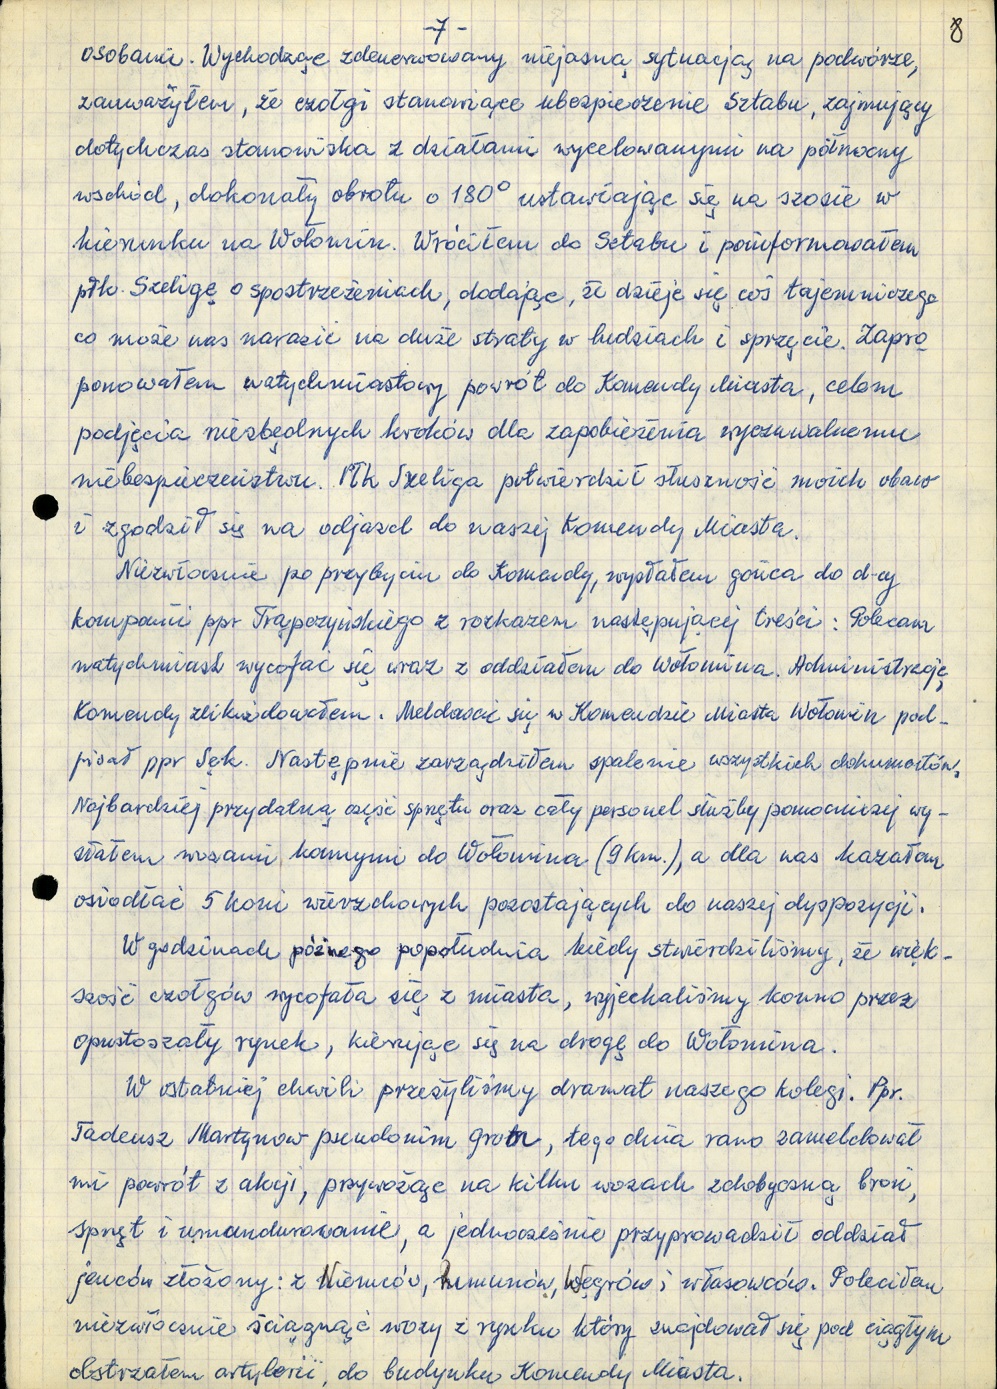 -7-
8
osobami. Wychodząc zdenerwowany niejasną sytuacją na podwórze,
zauważyłem, że czołgi stanowiące ubezpieczenie Sztabu, zajmujący
dotychczas stanowiska z działami wycelowanymi na północny
wschód, dokonały obrotu o 180° ustawiając się na szosie w
kierunku na Wołomin. Wróciłem do Sztabu i poinformowałem
płk. Szeligę o spostrzeżeniach, dodając, że dzieje się coś tajemniczego
co może nas narazić na duże straty w ludziach i sprzęcie. Zapro
ponowałem natychmiastowy powrót do Komendy Miasta, celem
podjęcia niezbędnych kroków dla zapobieżenia wyczuwalnemu
niebezpieczeństwu. Płk Szeliga potwierdził słuszność moich obaw
i zgodził się na odjazd do naszej Komendy Miasta.
Niezwłocznie po przybyciu do Komendy, wysłałem gońca do d-cy
kompanii ppr Trąpczyńskiego z rozkazem następującej treści: Polecam
natychmiast wycofać się wraz z oddziałem do Wołomina. Administrację
Komendy zlikwidowałem. Meldować się w Komendzie Miasta Wołomin pod-
pisał ppr Sęk. Następnie zarządziłem spalenie wszystkich dokumentów.
Najbardziej przydatną część sprzętu oraz cały personel służby pomocniczej wy-
słałem wozami konnymi do Wołomina (9 km.), a dla nas kazałem
osiodłać 5 koni wierzchowych pozostających do naszej dyspozycji.
W godzinach późnego popołudnia kiedy stwierdziliśmy, że więk-
szość czołgów wycofała się z miasta, wyjechaliśmy konno przez
opustoszały rynek, kierując się na drogę do Wołomina.
W ostatniej chwili przeżyliśmy dramat naszego kolegi. Ppr.
Tadeusz Martynow pseudonim Grot, tego dnia rano zameldował
mi powrót z akcji, przywożąc na kilku wozach zdobyczną broń,
sprzęt i umundurowanie, a jednocześnie przyprowadził oddział
jeńców złożony: z Niemców, rumunów, Węgrów i własowców. Poleciłem
niezwłocznie ściągnąć wozy z rynku który znajdował się pod ciągłym
obstrzałem artylerii, do budynku Komendy Miasta.